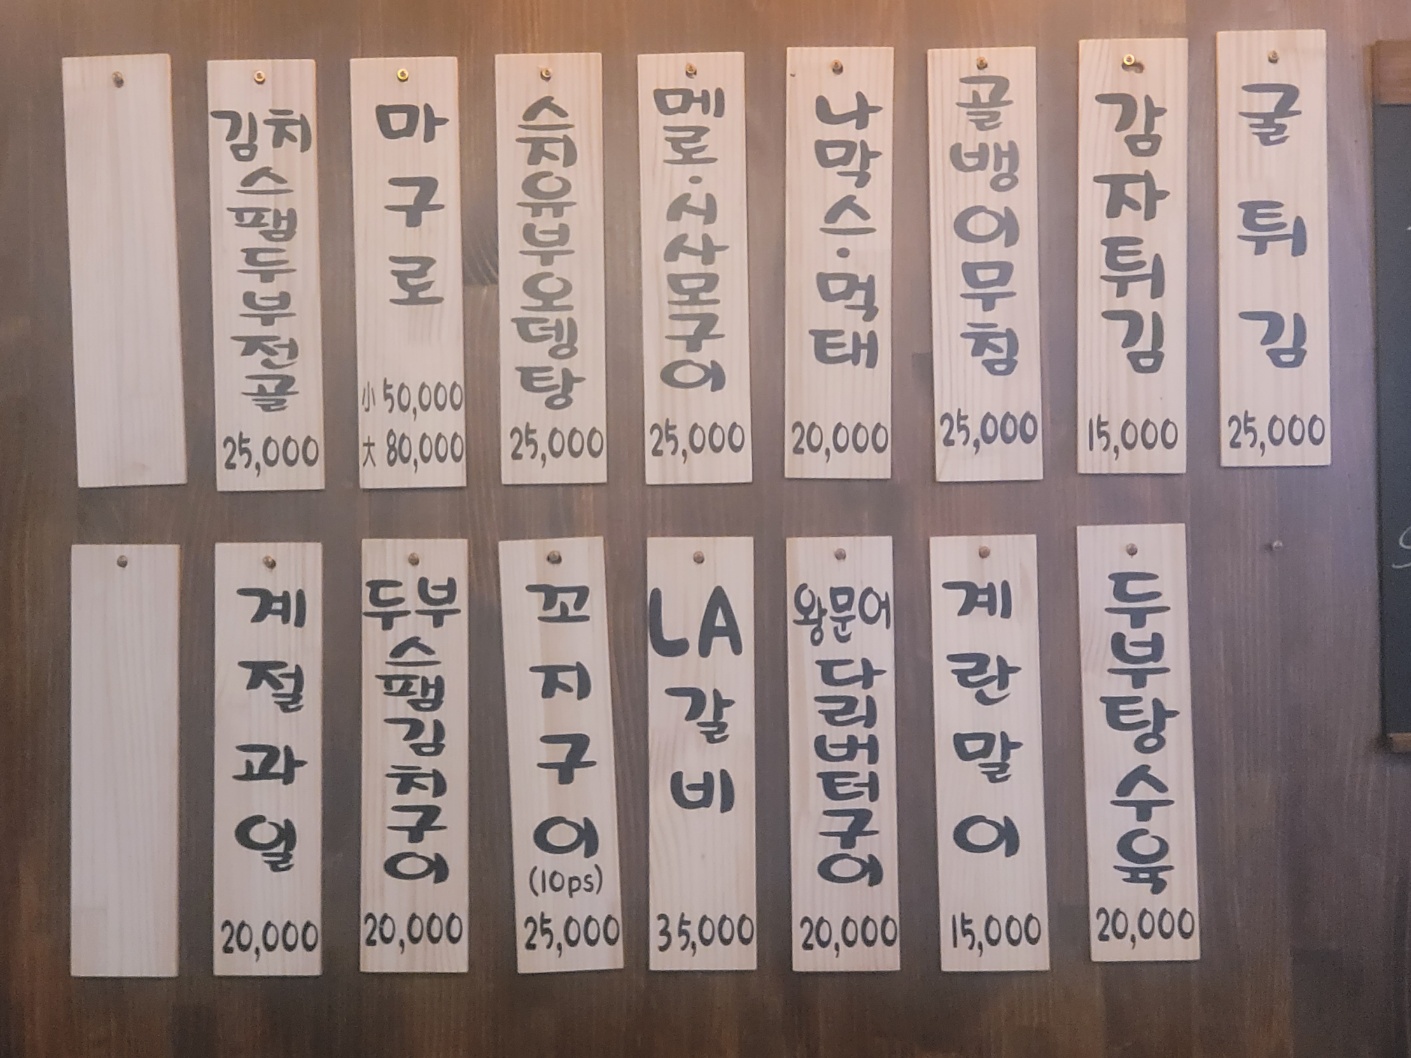 김치스팸두부전골
25,000
마구로
小 50,000
大 80,000
스지유부오뎅탕
25,000
메로·시사모구이
25,000
나막스·먹태
20,000
골뱅이무침
25,000
감자튀김
15,000
굴튀김
25,000
계절과일
20,000
두부스팸김치구이
20,000
꼬지구이
(10ps)
25,000
LA갈비
35,000
왕문어다리버터구이
20,000
계란말이
15,000
두부탕수육
20,000